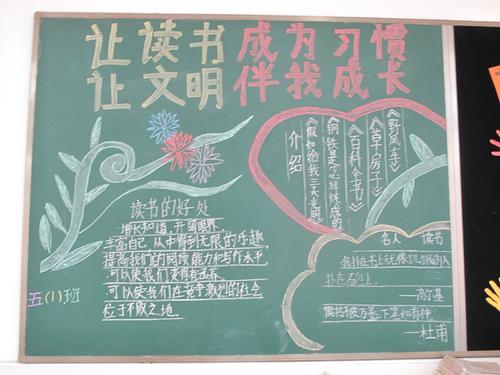 让读书成为习惯
让文明伴我成长
读书的好处
增长知识，开阔眼界
丰富自己，从中得到无限的乐趣
提高我们的阅读能力和写作水平
可以使我们变得有涵养
可以使我们在竞争激烈的社会
位于不败之地。
五(1)班
《野风车》
《草房子》
《百科全书》
《钢铁是怎样炼成的》
《假如给我三天光明》
介绍
名人 读书
我扑在书上就像饥饿的人
扑在面包上
——高尔基
读书破万卷，下笔如有神
——杜甫